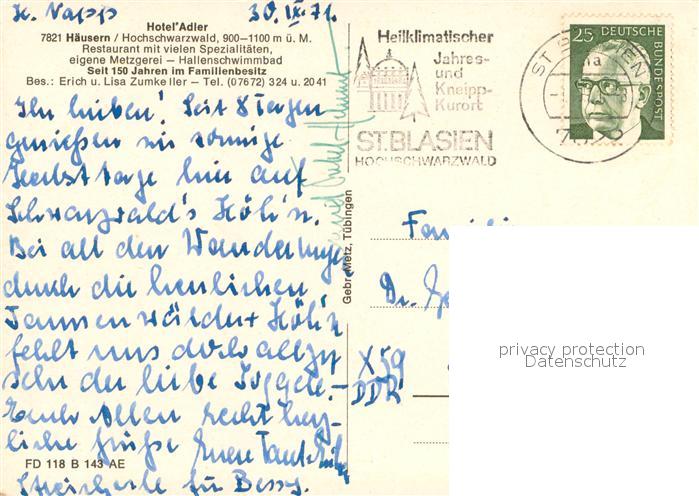 30. IX. 71.
Hotel Adler
7821 Häusern / Hochschwarzwald, 900—1100 m ü. M.
Restaurant mit vielen Spezialitäten,
eigene Metzgerei — Hallenschwimmbad
Seit 150 Jahren im Familienbesitz
Bes.: Erich u. Lisa Zumkeller — Tel. (07672) 324 u. 2041
Ihr Lieben! Seit 8 Tagen
genießen wir sonnige
Herbsttage hier auf
Schwarzwald's Höh'n.
Bei all den Wanderungen
durch die herrlichen
Tannenwälder + Höh'n
fehlt uns doch allzu
sehr der liebe Joggele. —
Euch Allen recht herz-
liche Grüße Eure Tante
Streicherle für Bessy.
FD 118 B 143 AE
Gebr. Metz, Tübingen
Heilklimatischer
Jahres-
und
Kneipp-
Kurort
ST.BLASIEN
HOCHSCHWARZWALD
ST. BLASIEN
25 DEUTSCHE
BUNDESPOST
Familie
Dr.
X59
DDR
privacy protection
Datenschutz